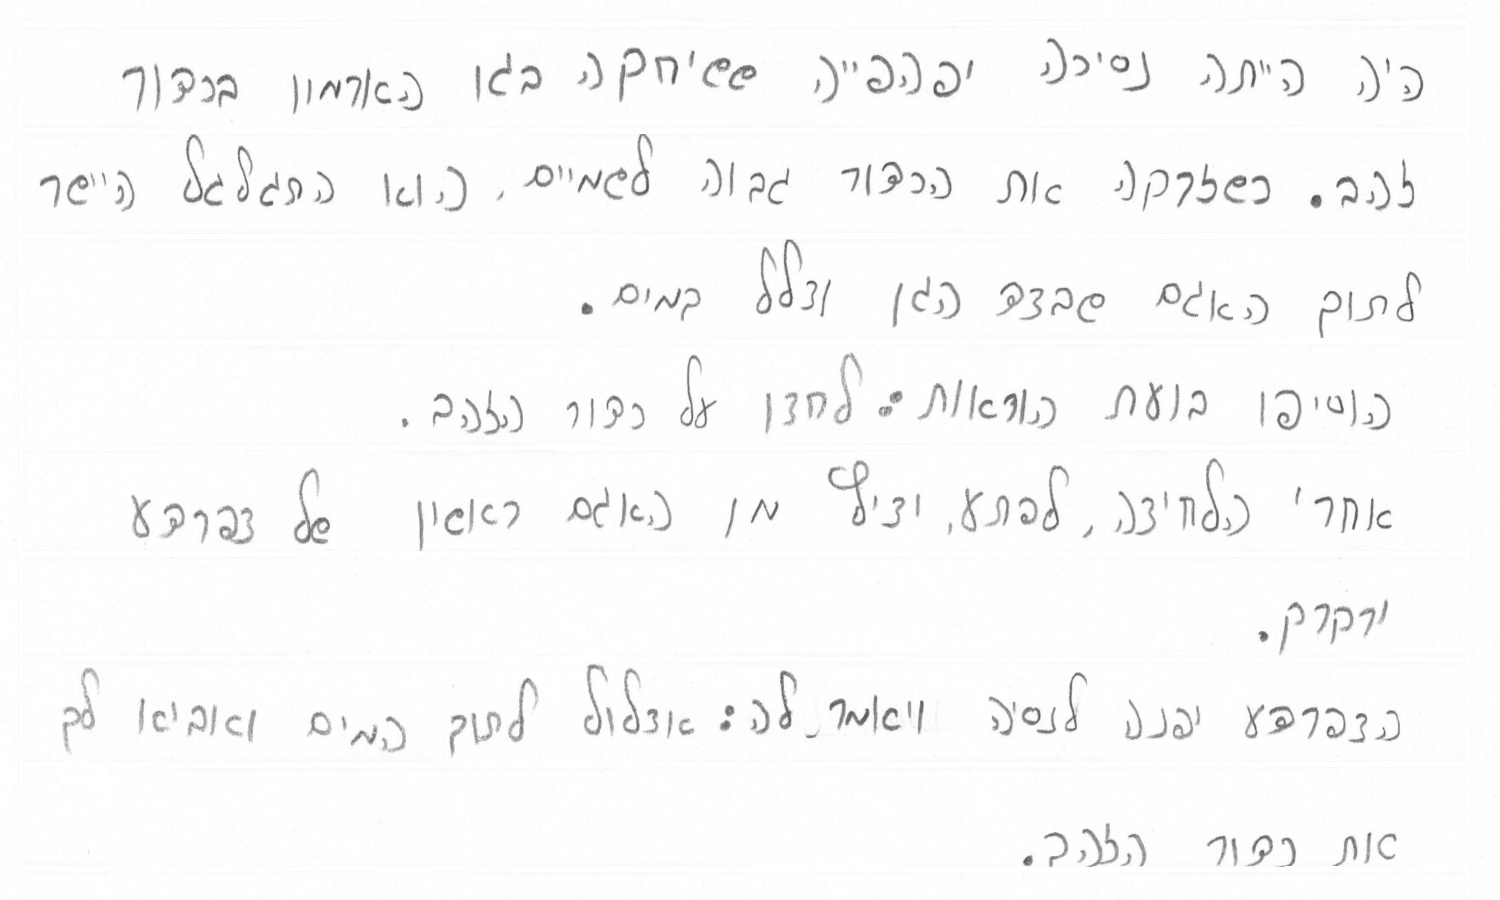 היה הייתה נסיכה יפהפייה ששיחקה בגן הארמון בכדור
זהב. כשזרקה את הכדור גבוה לשמיים, הוא התגלגל היישר
לתוך האגם שבצד הגן וצלל במים.
הוסיפו בועת הוראות: לחצו על כדור הזהב.
אחרי הלחיצה, לפתע, יציץ מן האגם ראשון של צפרדע
ירקרק.
הצפרדע יפנה לנסיה ויאמר לה: אצלול לתוך המים ואביא לך
את כדור הזהב.